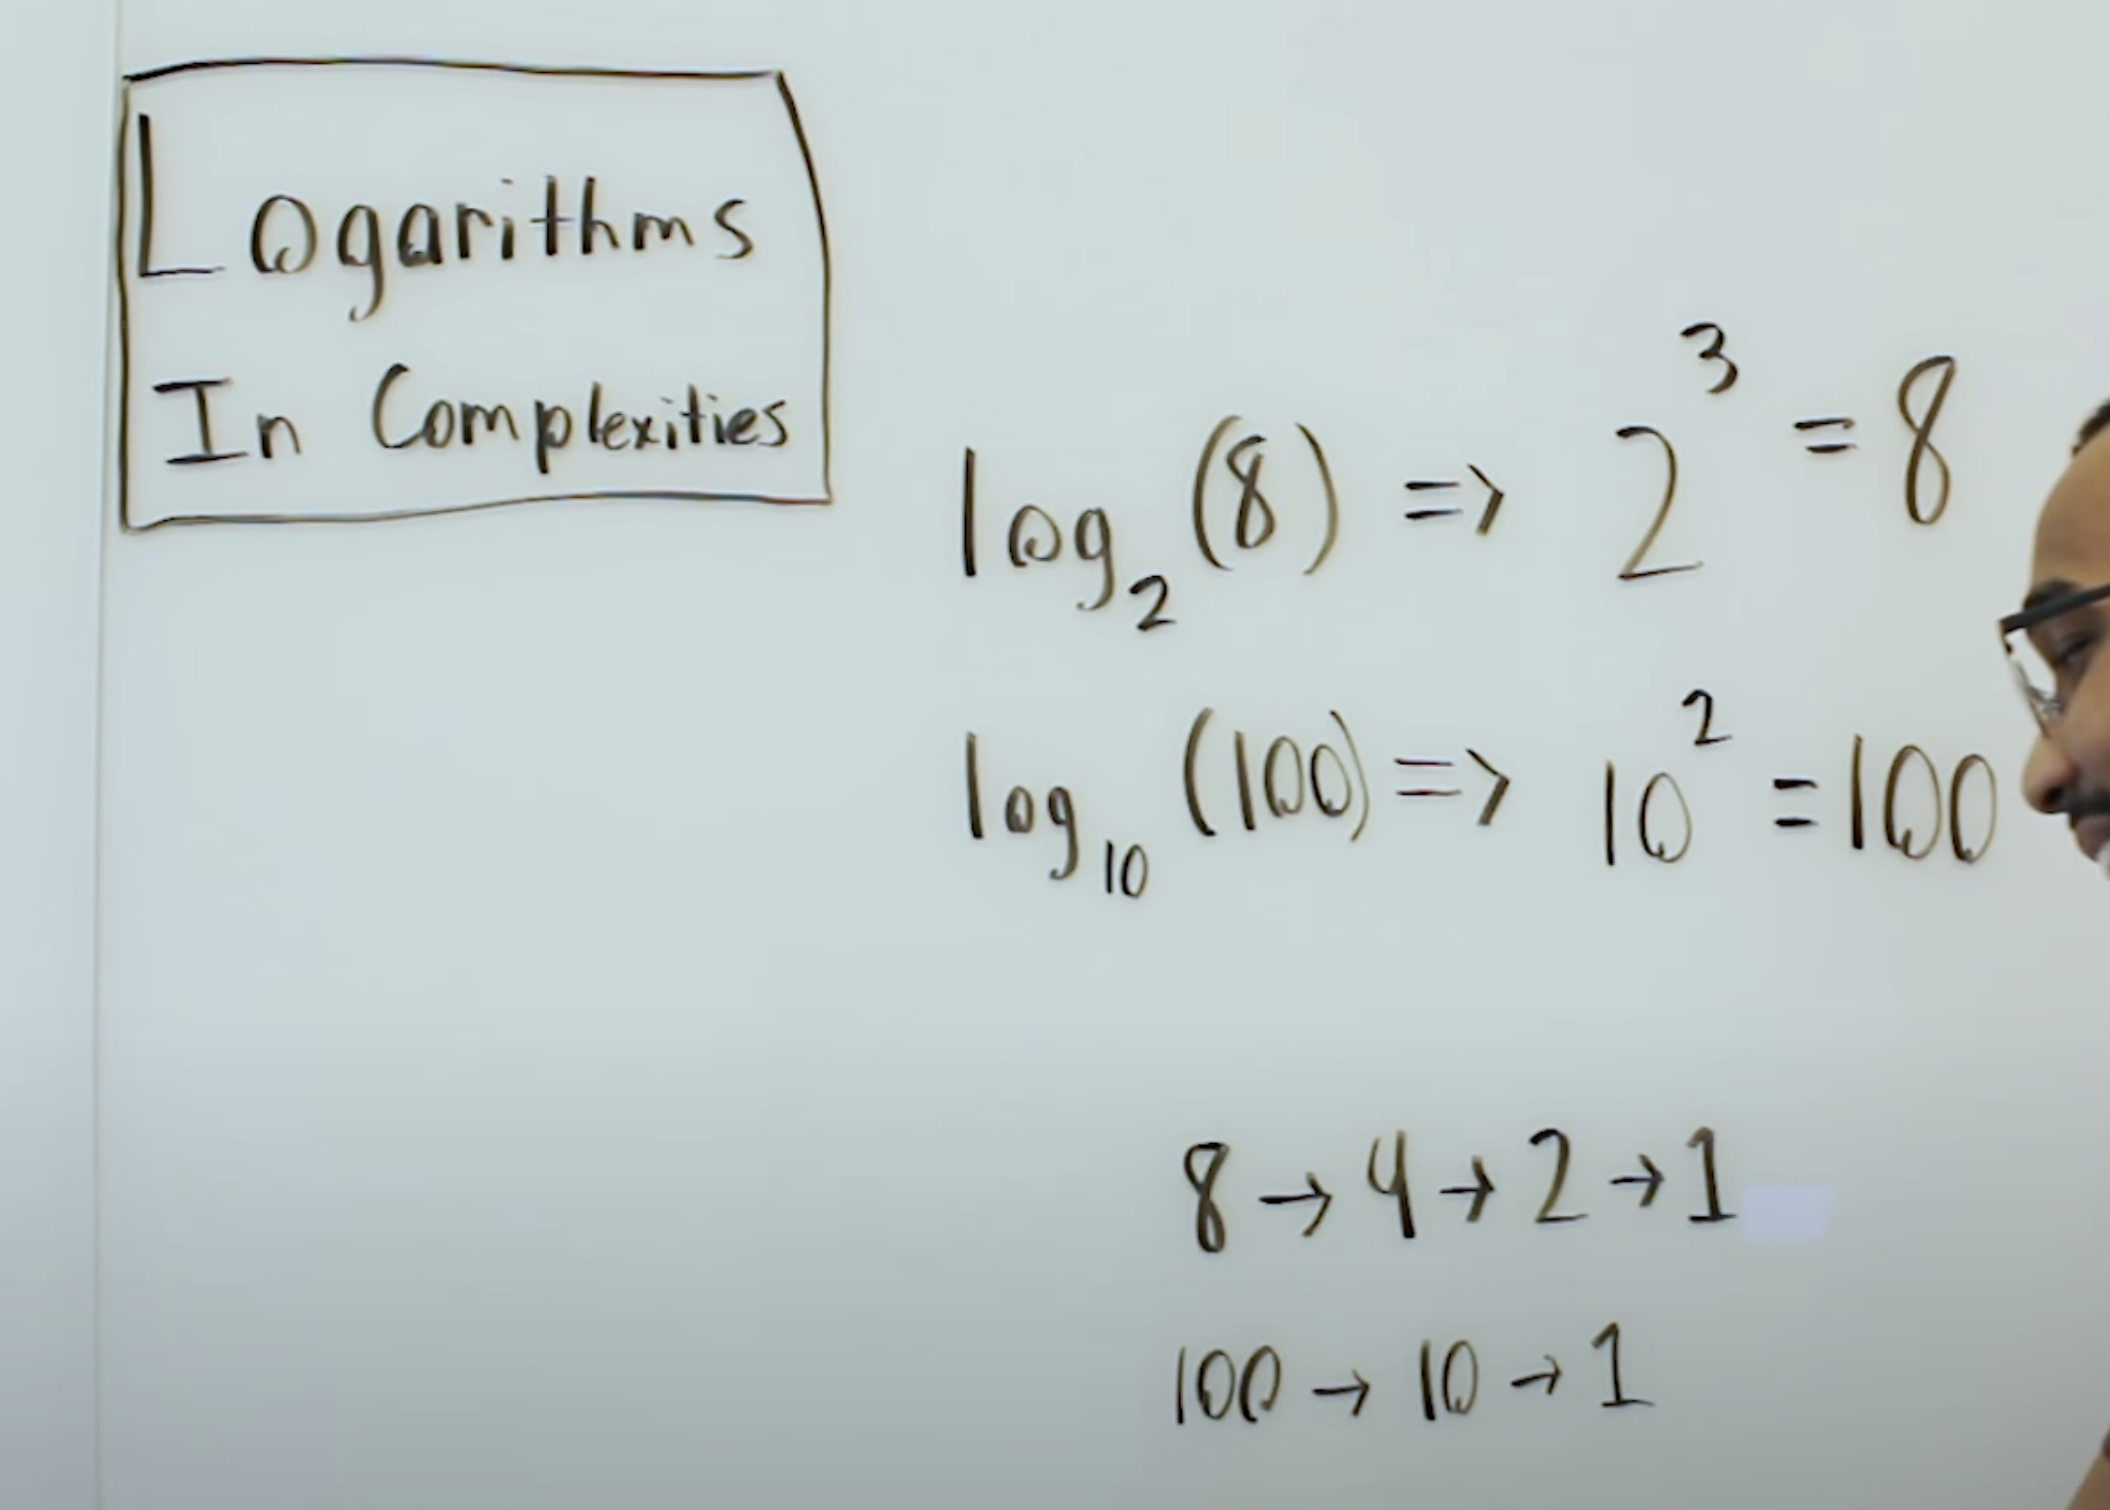 Logarithms
In Complexities
log₂(8) => 2³ = 8
log₁₀(100) => 10² = 100
8 → 4 → 2 → 1
100 → 10 → 1